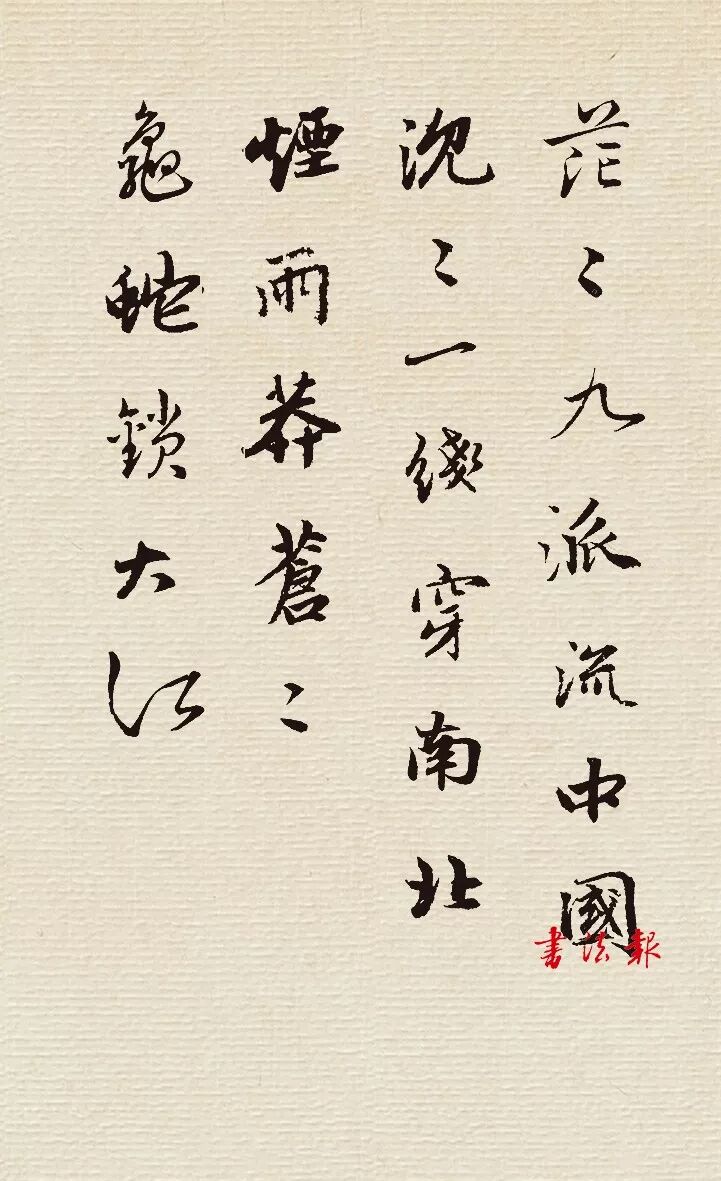 茫〻九派流中國
沈〻一綫穿南北
煙雨莽蒼〻
龜蛇鎖大江
書法報